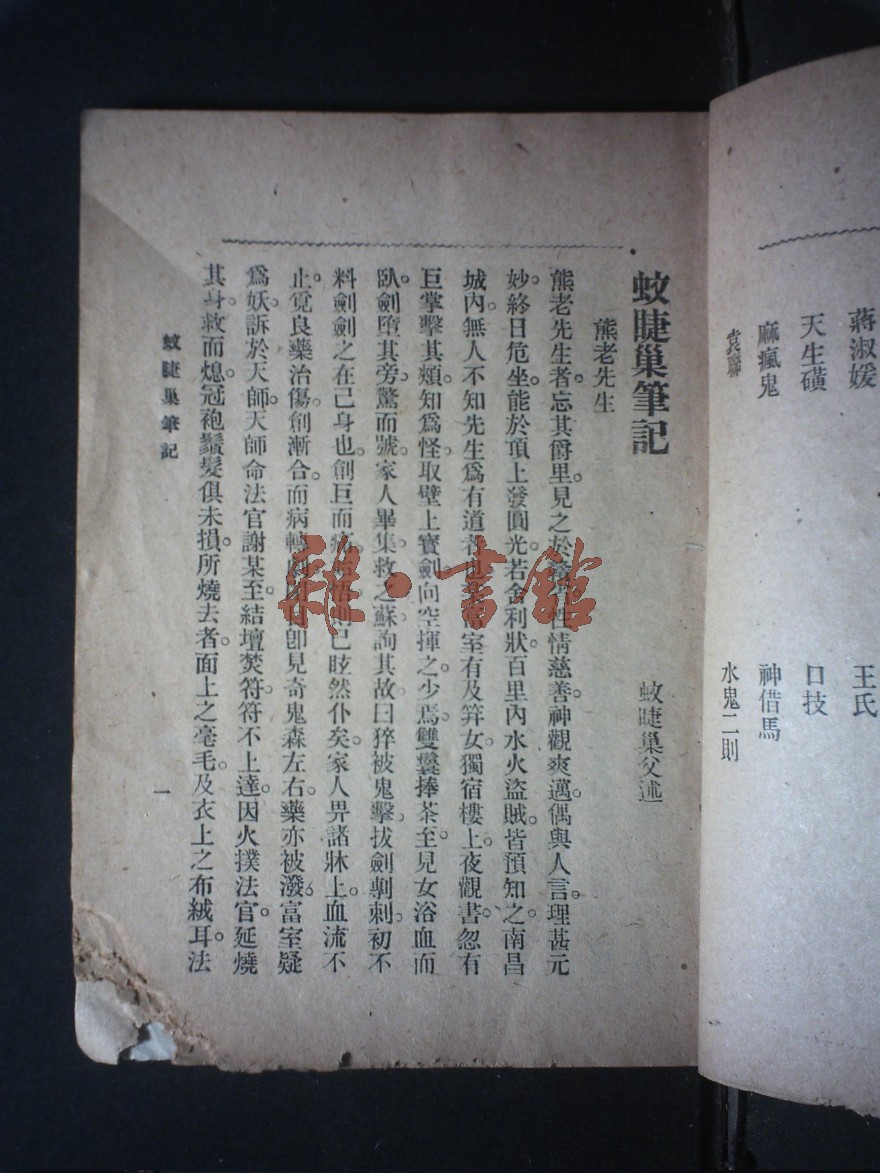 蔣淑媛 王氏
天生磺 口技
麻瘋鬼 神借馬
水鬼二則
蚊睫巢筆記
蚊睫巢父述
熊老先生
熊老先生者。忘其爵里。見之於 性情慈善。神觀爽邁。偶與人言。理甚元
妙。終日危坐。能於頂上發圓光。若舍利狀。百里內水火盜賊。皆預知之。南昌
城內。無人不知先生爲有道者也。 富室有及笄女。獨宿樓上。夜觀書。忽有
巨掌擊其頰。知爲怪。取壁上寶劍向空揮之。少焉。雙鬟捧茶至。見女浴血而
臥。劍墮其旁。驚而號。家人畢集。救之蘇。詢其故。曰猝被鬼擊。拔劍剸刺。初不
料劍劍之在己身也。創巨而痛 則已眩然仆矣。家人畀諸牀上。血流不
止。覓良藥治傷。創漸合。而病轉劇。閉目卽見奇鬼森左右。藥亦被潑。富室疑
爲妖。訴於天師。天師命法官謝某至。結壇焚符。符不上達。因火撲法官。延燒
其身。救而熄。冠袍鬚髮俱未損。所燒去者。面上之毫毛。及衣上之布絨耳。法
蚊睫巢筆記
一
雜·書館